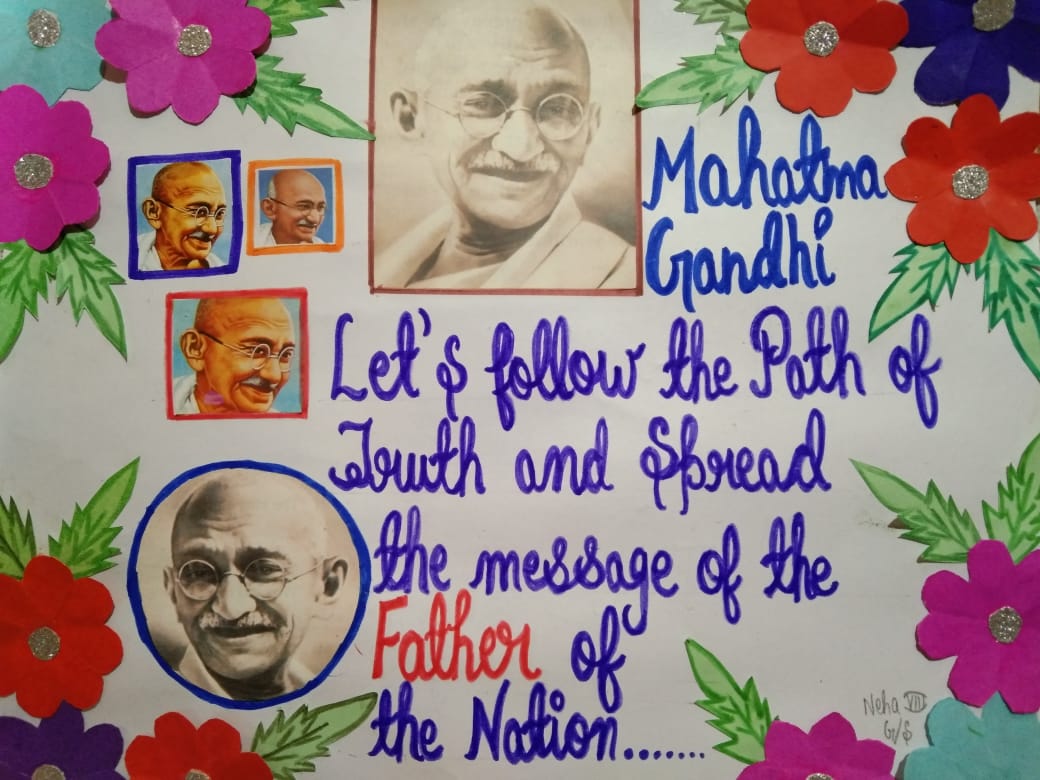 Mahatma
Gandhi
Let's follow the Path of
Truth and Spread
the message of the
Father of
the Nation.......
Neha VII
G/S